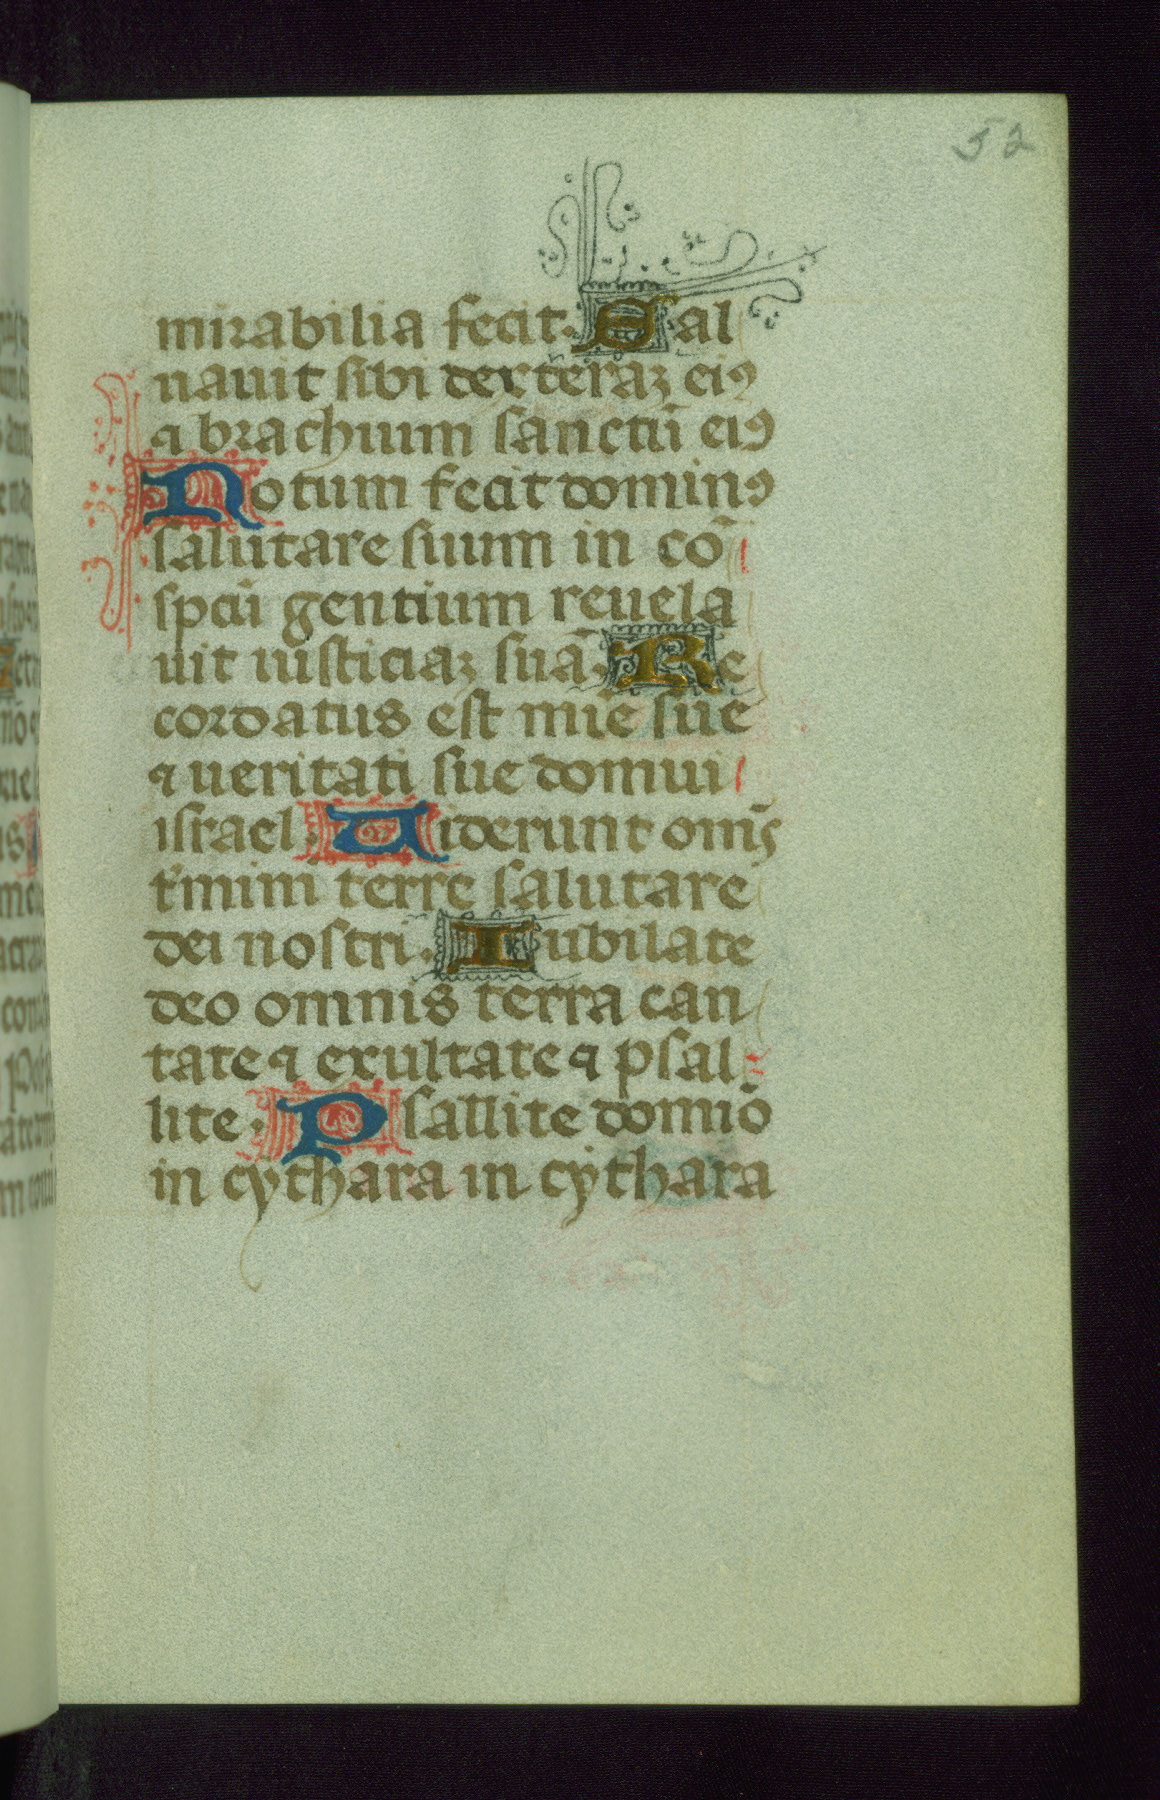 52
mirabilia fecit. Sal
uauit sibi dexteraz eiꝯ
⁊ brachium sanctū eiꝯ
Notum fecit dominꝯ
salutare suum in cō
spcū gentium reuela
uit iusticiaz suā. Re
cordatus est mīe sue
⁊ ueritati sue domui
israel. Uiderunt om̄s
t̄mini terre salutare
dei nostri. Iubilate
deo omnis terra can
tate ⁊ exultate ⁊ psal
lite. Psallite domiō
in cythara in cythara